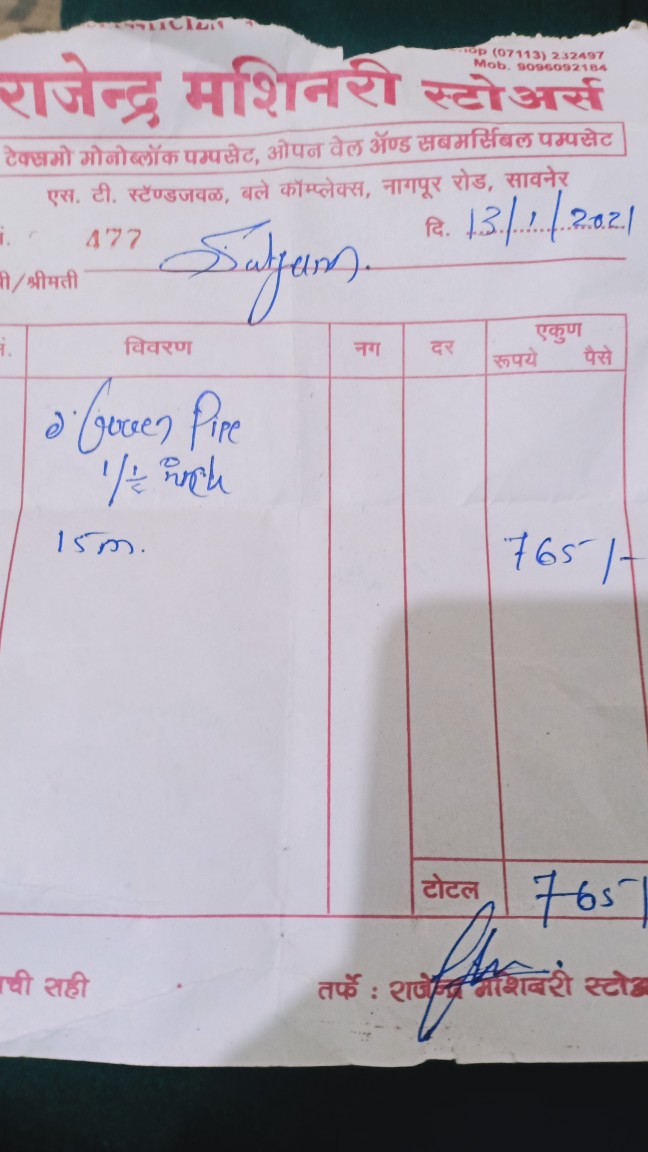 op (07113) 232497
Mob. 9096092184
राजेन्द्र मशिनरी स्टोअर्स
टेक्समो मोनोब्लॉक पम्पसेट, ओपन वेल ॲण्ड सबमर्सिबल पम्पसेट
एस. टी. स्टॅण्डजवळ, बले कॉम्प्लेक्स, नागपूर रोड, सावनेर
477 दि. 13/1/2021
/श्रीमती Satyam.
विवरण नग दर एकुण
रूपये पैसे
Green Pipe
1/½ inch
15 m. 765/-
टोटल 765/
ची सही तर्फे : राजेन्द्र मशिनरी स्टोअ